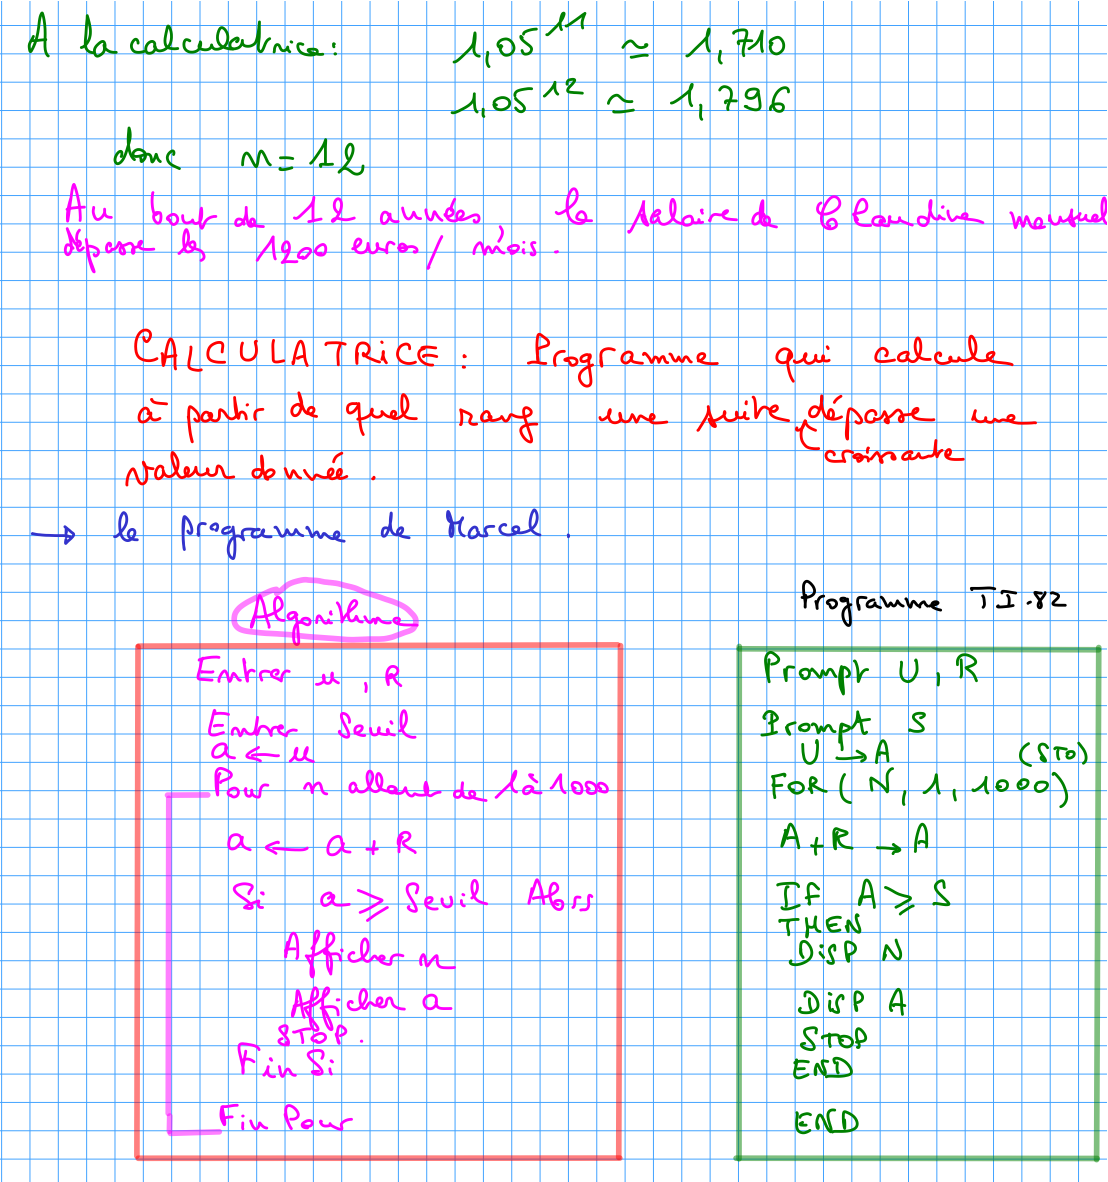 A la calculatrice : 1,05^11 ≃ 1,710
1,05^12 ≃ 1,796
donc n = 12
Au bout de 12 années le salaire de Claudine mensuel
dépasse les 1200 euros / mois.
CALCULATRICE : Programme qui calcule
à partir de quel rang une suite dépasse une
croissante
valeur donnée.
→ le programme de Marcel.
Algorithme
Entrer u, R
Entrer Seuil
a ← u
Pour n allant de 1 à 1000
a ← a + R
Si a ⩾ Seuil Alors
Afficher n
Afficher a
STOP.
Fin Si
Fin Pour
Programme TI.82
Prompt U, R
Prompt S
U → A (STO)
FOR( N, 1, 1000)
A + R → A
If A ⩾ S
THEN
DISP N
DISP A
STOP
END
END